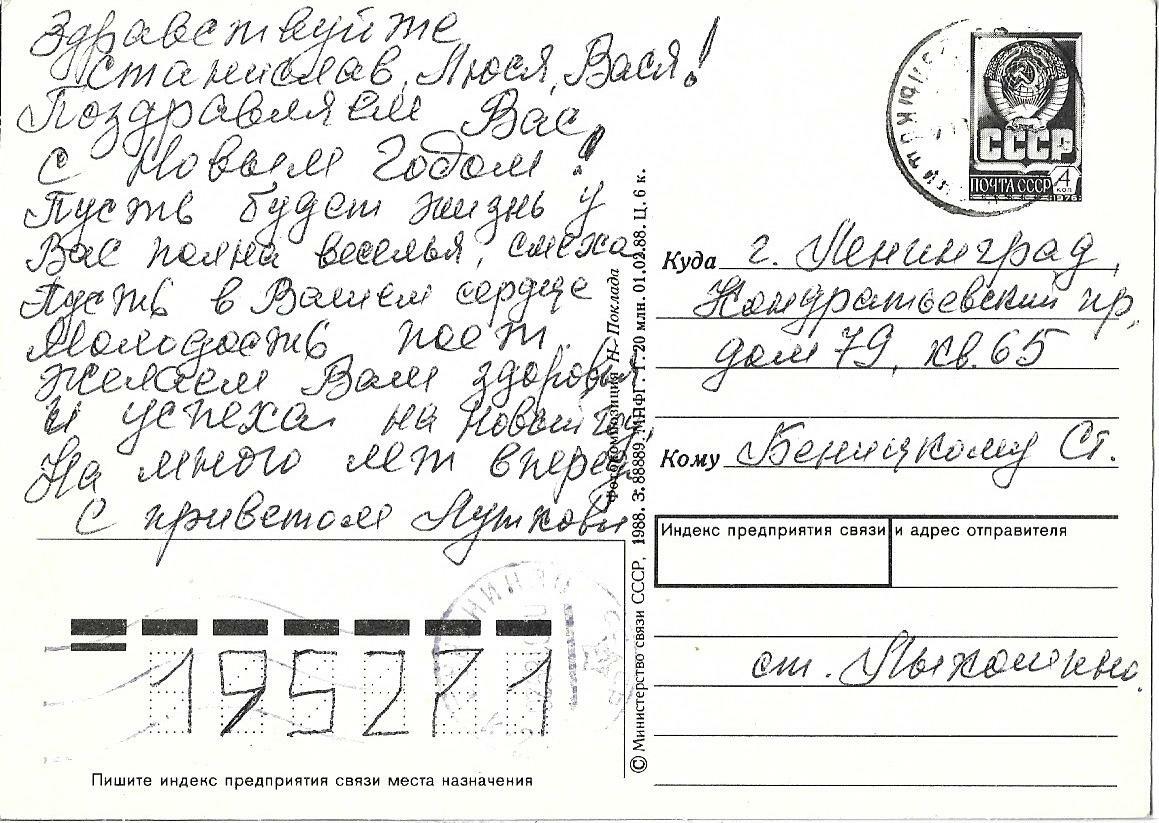 Здравствуйте
Станислав, Люся, Вася!
Поздравляем Вас
с Новым Годом!
Пусть будет жизнь у
Вас полна веселья, смеха
Пусть в Вашем сердце
Молодость поет.
Желаем Вам здоровья
и успеха на Новый год,
На много лет вперед
С приветом Лутковы
СССР
ПОЧТА СССР
4
коп
1976
Куда г. Ленинград,
Кондратьевский пр,
дом 79, кв. 65
Кому Беницкому Ст.
Индекс предприятия связи и адрес отправителя
ст.
195271
Пишите индекс предприятия связи места назначения
Фотокомпозиция Н. Поклада
© Министерство связи СССР, 1988. З. 88889. МПФГ. Т. 20 млн. 01.02.88. Ц. 6 к.